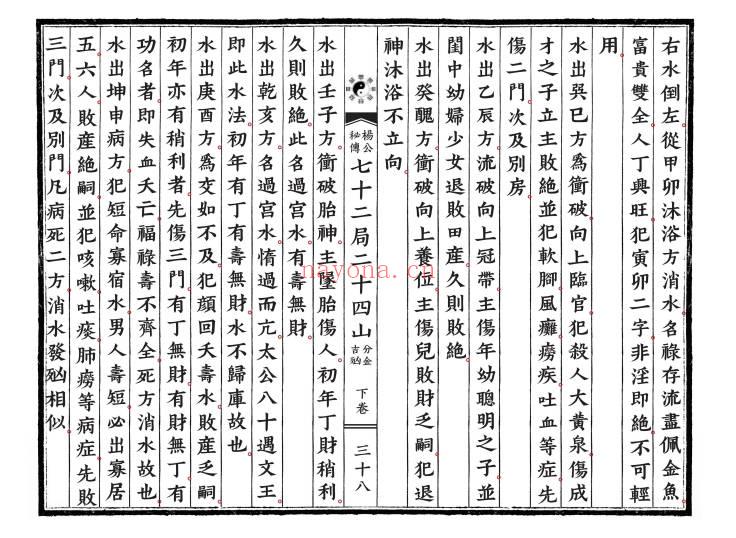 右水倒左從甲卯沐浴方消水名祿存流盡佩金魚
富貴雙全人丁興旺犯寅卯二字非淫即絕不可輕
用
水出巽巳方為衝破向上臨官犯殺人大黄泉傷成
才之子立主敗絕並犯軟腳風癱癆疾吐血等症先
傷二門次及別房
水出乙辰方流破向上冠帶主傷年幼聰明之子並
閨中幼婦少女退敗田産久則敗絕
水出癸醜方衝破向上養位主傷兒敗財乏嗣犯退
神沐浴不立向
楊公秘傳
七十二局二十四山
分金吉凶
下卷
三十八
水出壬子方衝破胎神主墜胎傷人初年丁財稍利
久則敗絕此名過宮水有壽無財
水出乾亥方名過宮水惰過而亢太公八十遇文王
即此水法初年有丁有壽無財水不歸庫故也
水出庚酉方為交如不及犯顔回夭壽水敗産乏嗣
初年亦有稍利者先傷三門有丁無財有財無丁有
功名者即失血夭亡福祿壽不齊全死方消水故也
水出坤申病方犯短命寡宿水男人壽短必出寡居
五六人敗産絕嗣並犯咳嗽吐痰肺癆等病症先敗
三門次及別門凡病死二方消水發凶相似
nayona.cn